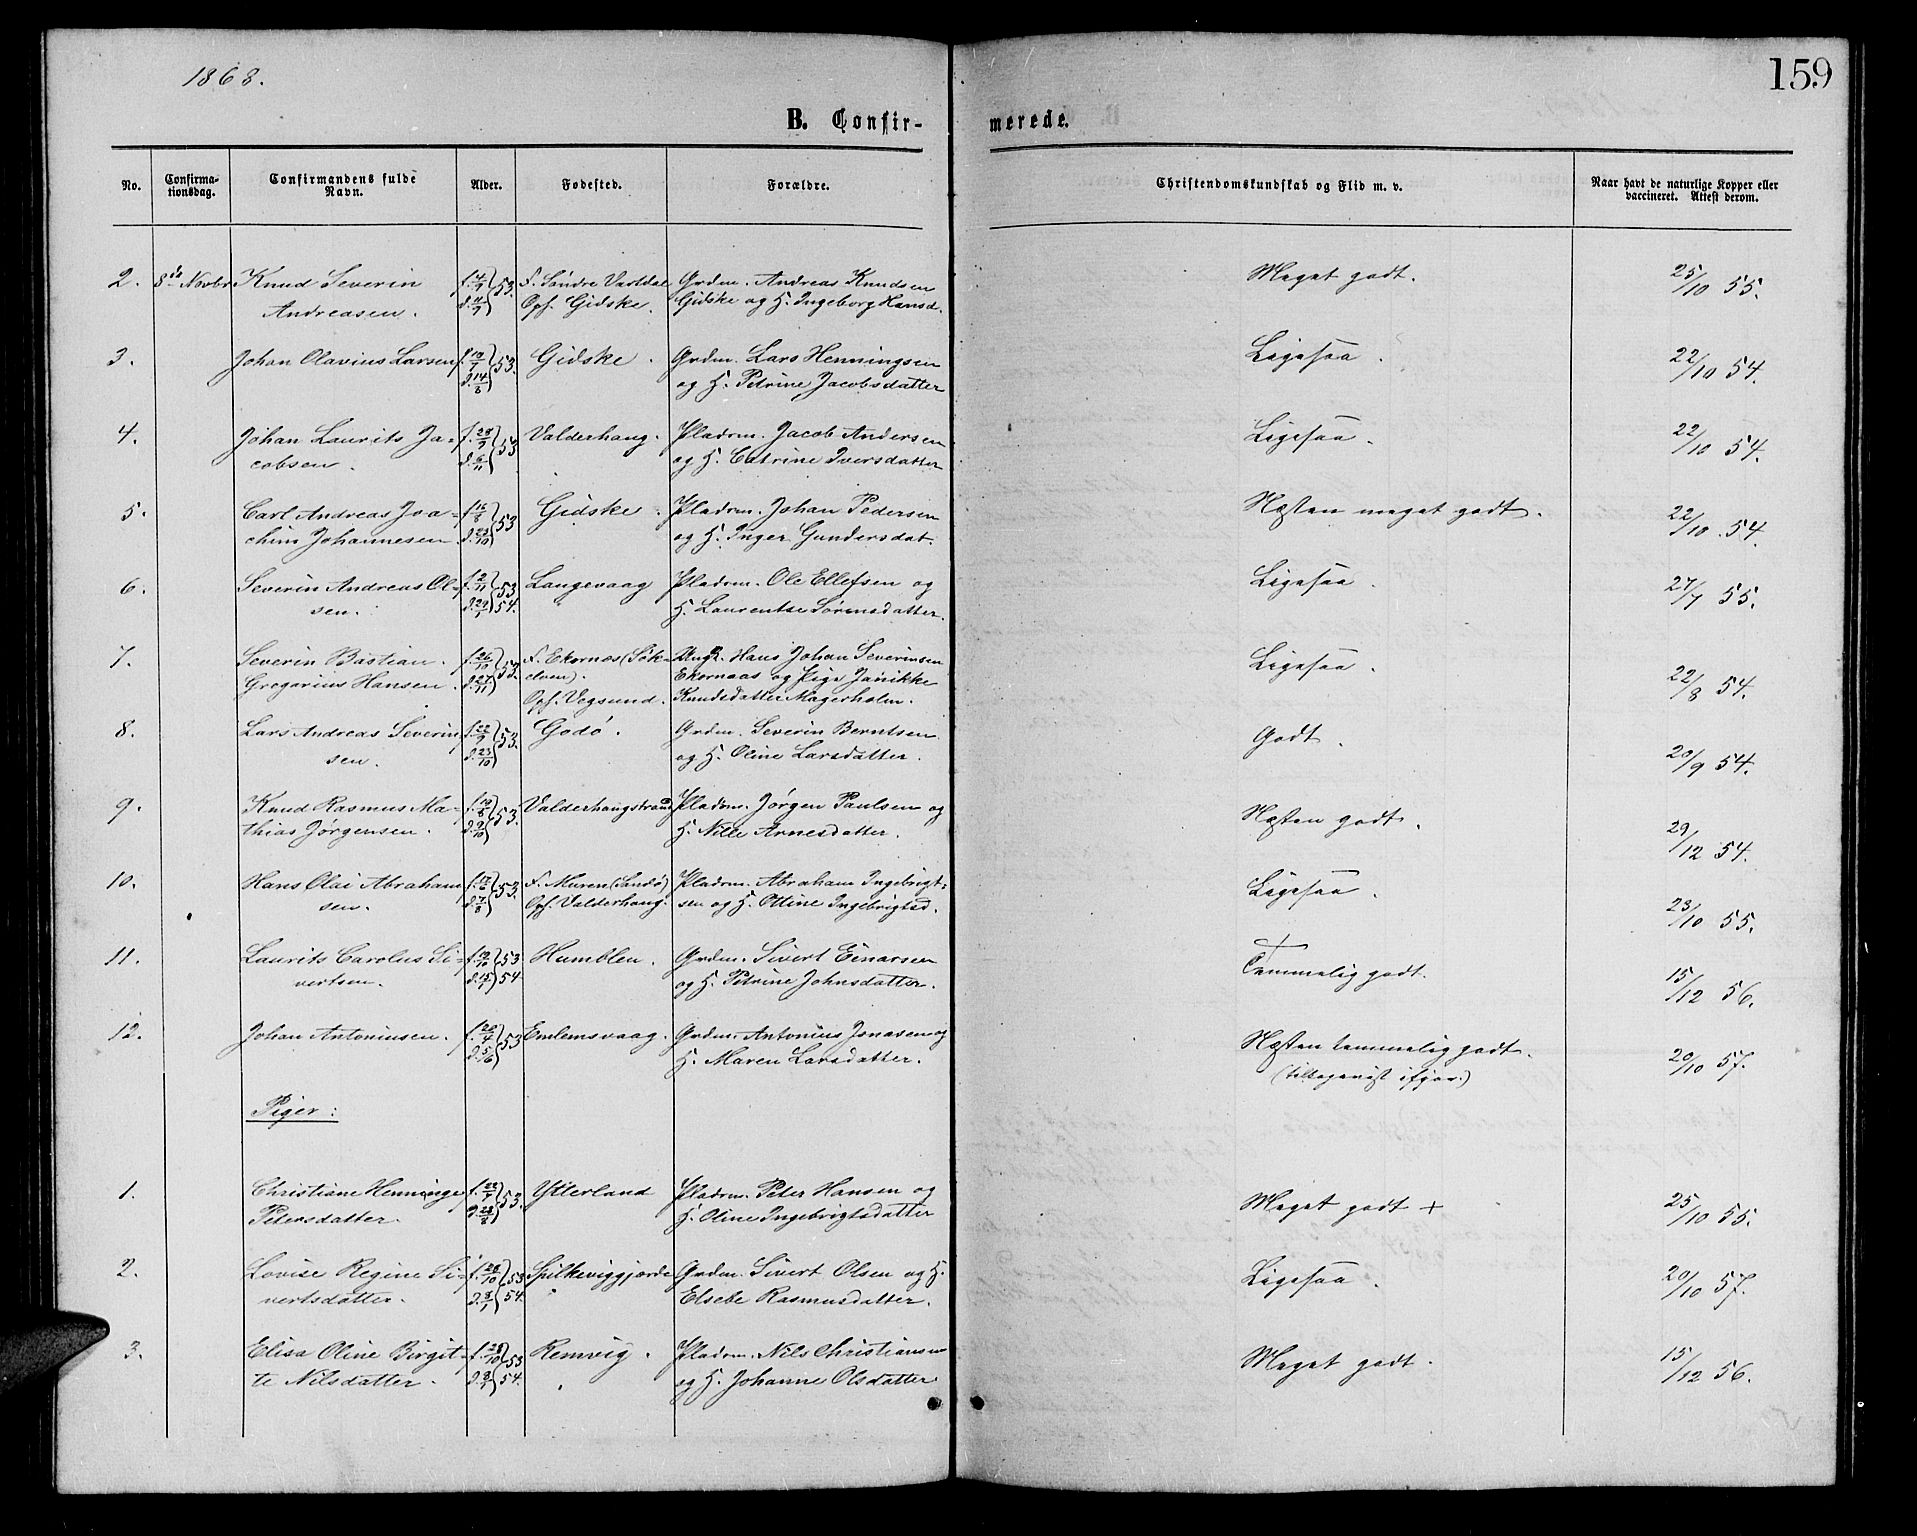 1868.
159
B. Confir-
merede.
No.
Confirma-
tionsdag.
Confirmandens fulde
Navn.
Alder.
Fødested.
Forældre.
Christendomskundskab og Flid m. v.
Naar havt de naturlige Kopper eller
vaccineret. Attest derom.
2. 8de Novbr Knud Severin f. 4/7 53. F. Søndre Vartdal Grdm. Andreas Knudsen Meget godt. 25/10 55.
Andreasen. Opf. Gidske. Gidske og H. Ingeborg Hansd.
3. Johan Olavius Larsen f. 19/7 53. Gidske. Grdm. Lars Henningsen Ligesaa. 22/10 54.
d. 14/8 og H. Petrine Jacobsdatter
4. Johan Laurits Ja- f. 28/9 53 Valderhaug. Pladsm. Jacob Andersen Ligesaa. 22/10 54.
cobsen. d. 6/11 og H. Catrine Iversdatter
5. Carl Andreas Joa- f. 16/8 53 Gidske. Pladsm. Johan Pedersen Næsten meget godt. 22/10 54.
chim Johannesen. d. 23/10 og H. Inger Gundersdat.
6. Severin Andreas Ol- f. 2/11 53 Langevaag Pladsm. Ole Ellefsen og Ligesaa. 27/7 55.
sen. d. 29/1 54. H. Laurentse Sørensdatter.
7. Severin Bastian f. 26/10 53. F. Ekornæs (Søk- Ungk. Hans Johan Severinsen Ligesaa. 22/8 54.
Gregarius Hansen. d. 27/11 elven). Ekornaas og Pige Janikke
Opf. Vegsund. Knudsdatter Magerholm.
8. Lars Andreas Severin f. 22/9 53. Godø. Grdm. Severin Berntsen Godt. 20/9 54.
sen. d. 23/10 og H. Oline Larsdatter.
9. Knud Rasmus Ma- f. 19/8 53. Valderhaugstrand Pladsm. Jørgen Paulsen og Næsten godt. 29/12 54.
thias Jørgensen. d. 9/10 H. Nille Arnesdatter.
10. Hans Olai Abraham f. 17/6 53. F. Muren (Sandø) Pladsm. Abraham Ingebrigt- Ligesaa. 23/10 55.
sen. d. 7/8 Opf. Valderhaug. sen og H. Ottine Ingebrigtsd.
11. Laurits Carolus Si- f. 19/10 53 Humblen. Grdm. Sivert Einarsen Temmelig godt. 15/12 56.
vertsen. d. 15/1 54 og H. Petrine Johnsdatter.
12. Johan Antoniusen. f. 26/4 53 Emlemsvaag. Grdm. Antonius Jonasen og Næsten temmelig godt. 20/10 57.
d. 5/6 H. Maren Larsdatter. ifjor.)
Piger:
1. Christiane Henninge f. 22/7 53. Ytterland Pladsm. Peter Hansen og Meget godt + 25/10 55.
Petersdatter. d. 28/8 H. Oline Ingebrigtsdatter
2. Lovise Regine Si- f. 28/10 53 Spilkeviggjerde Grdm. Sivert Olsen og H. Ligesaa. 20/10 57.
vertsdatter. d. 8/1 54. Elsebe Rasmusdatter.
3. Elisa Oline Birgit- f. 28/10 53 Remvig. Pladsm. Nils Christiansen Meget godt. 15/12 56.
te Nilsdatter. d. 8/1 54. og H. Johanne Olsdatter